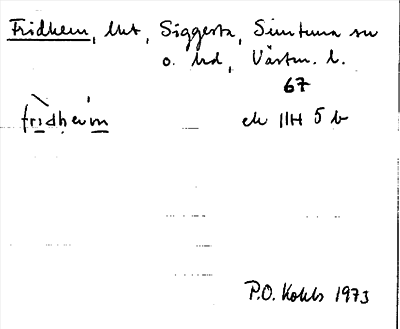 Fridhem, lht, Siggesta, Simtuna sn
o. hd, Västm. l.
67
fridheim
ek 11H 5 b
P.O. Kohls 1973